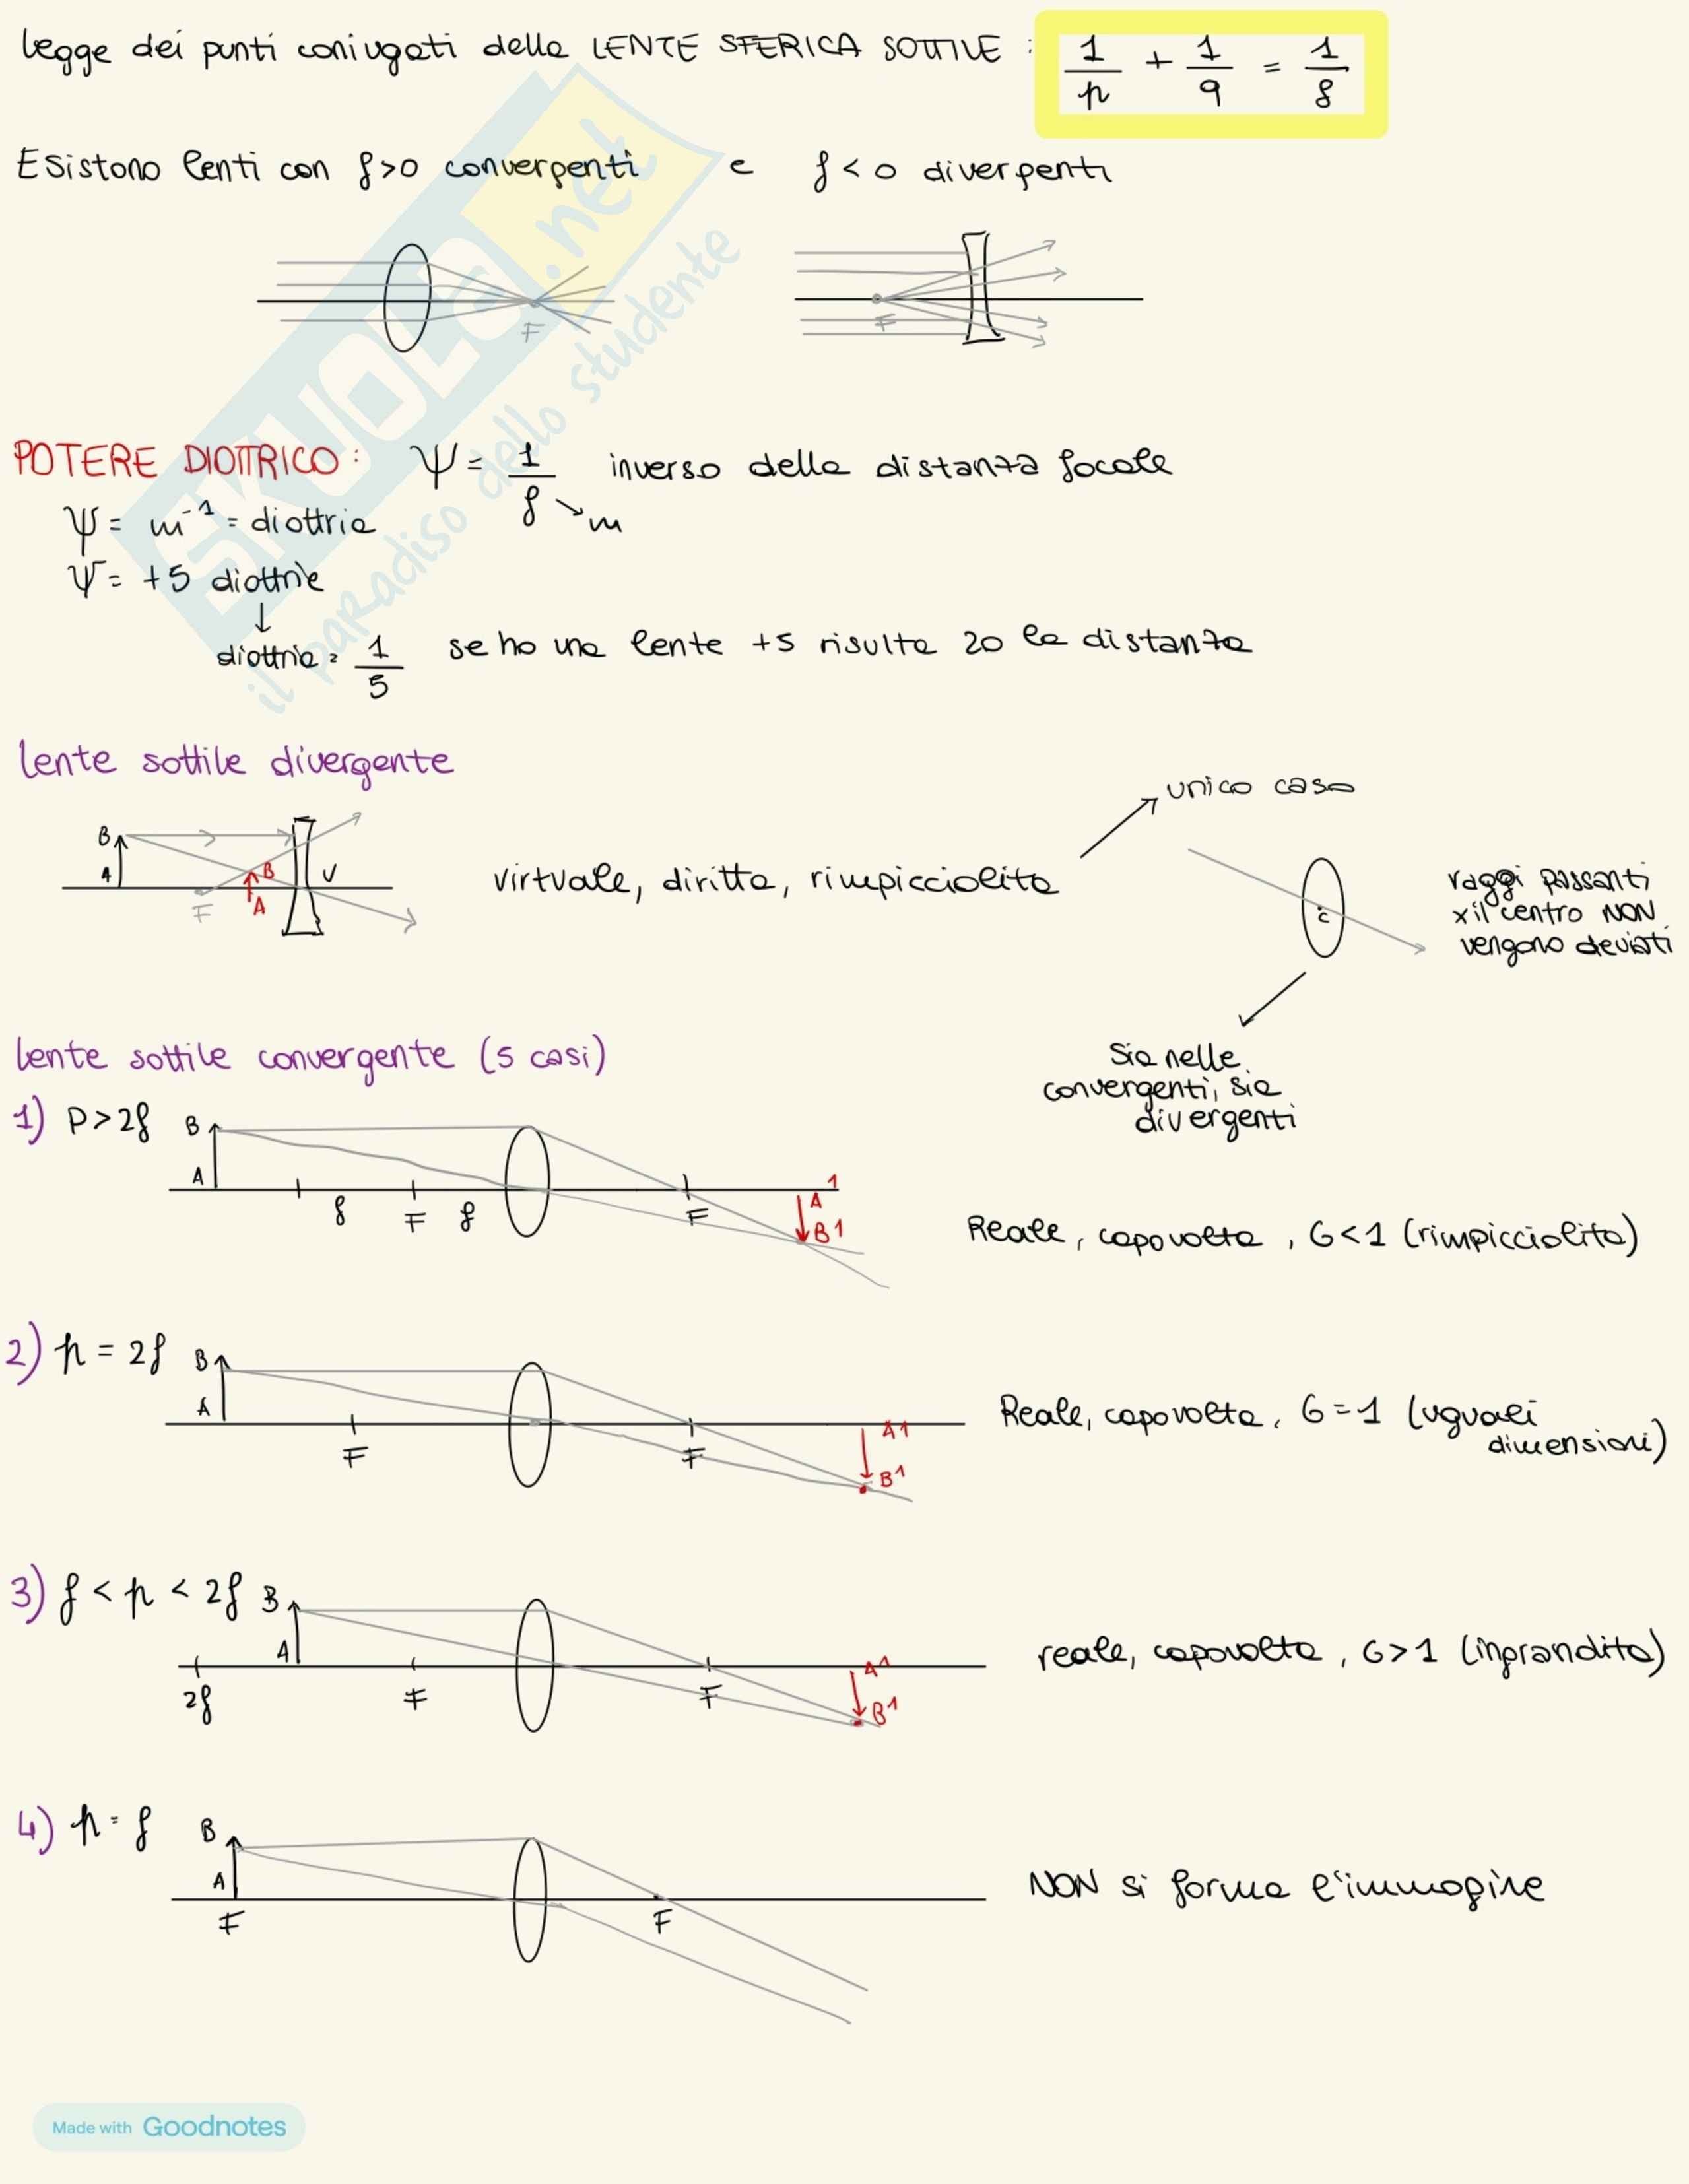 legge dei punti coniugati della LENTE SFERICA SOTTILE : 1/p + 1/q = 1/f
Esistono lenti con f>0 convergenti e f<0 divergenti
F
F
POTERE DIOTTRICO: ψ = 1/f → m inverso della distanza focale
ψ = m⁻¹ = diottria
ψ = +5 diottrie
↓
diottria = 1/5 se ho una lente +5 risulta 20 la distanza
lente sottile divergente
unico caso
B
A
F
B
A
V
virtuale, diritta, rimpicciolita
c
raggi passanti
x il centro NON
vengono deviati
Sia nelle
convergenti, sia
divergenti
lente sottile convergente (5 casi)
1) P>2f B
A
f F f F A1
B1
Reale, capovolta, G<1 (rimpicciolita)
2) p = 2f B
A
F F A1
B1
Reale, capovolta, G=1 (uguali
dimensioni)
3) f < p < 2f B
A
2f F F A1
B1
reale, capovolta, G>1 (ingrandita)
4) p = f B
A
F F
NON si forma l'immagine
Made with Goodnotes
SKUOLA.net
il paradiso dello studente